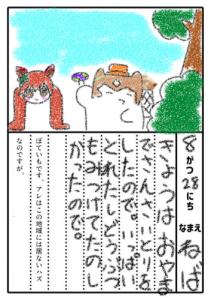 8がつ28にち なまえ ねば
きょうはおやま
でさんさいとりを
したので。いっぱい
とれたしどうぶつ
もみつけてたのし
かったので。
ぽていもです。アレはこの地域には居ないハズ
なのですが。